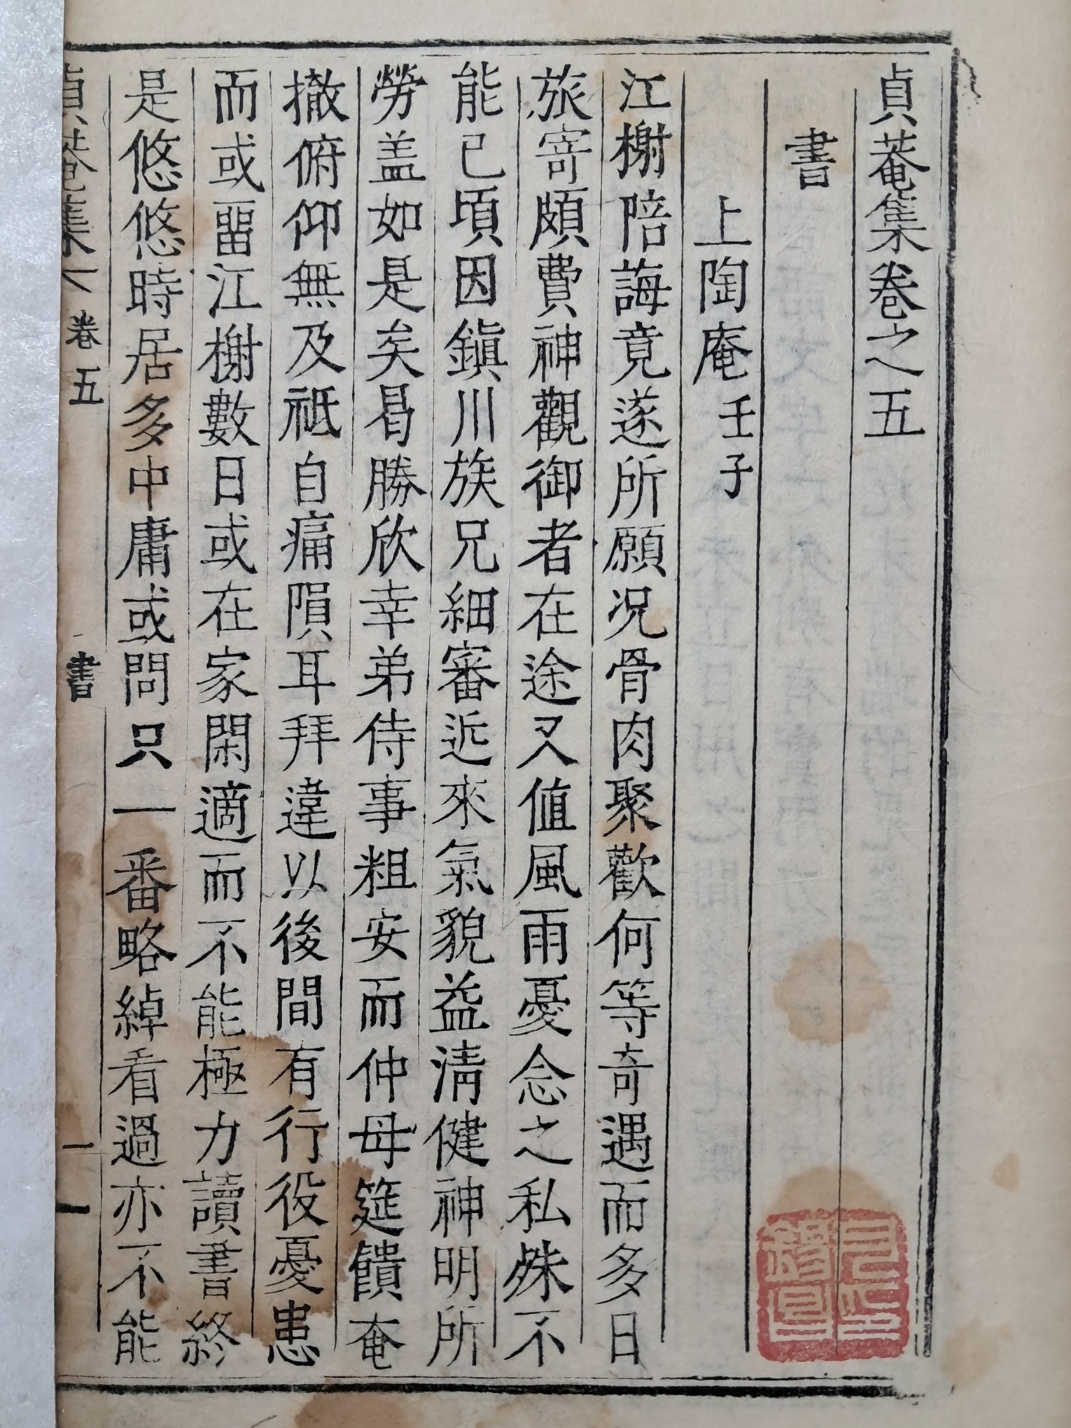 貞菴集卷之五
書
上陶庵壬子
江榭陪誨竟遂所願况骨肉聚歡何等奇遇而多日
旅寄頗費神觀御者在途又值風雨憂念之私殊不
能已頃因鎭川族兄細審近來氣貌益淸健神明所
勞盖如是矣曷勝欣幸弟侍事粗安而仲母筵饋奄
撤俯仰無及祗自痛隕耳拜違以後間有行役憂患
而或畱江榭數日或在家閑適而不能極力讀書終
是悠悠時居多中庸或問只一番略綽看過亦不能
貞菴集
卷五
書
一